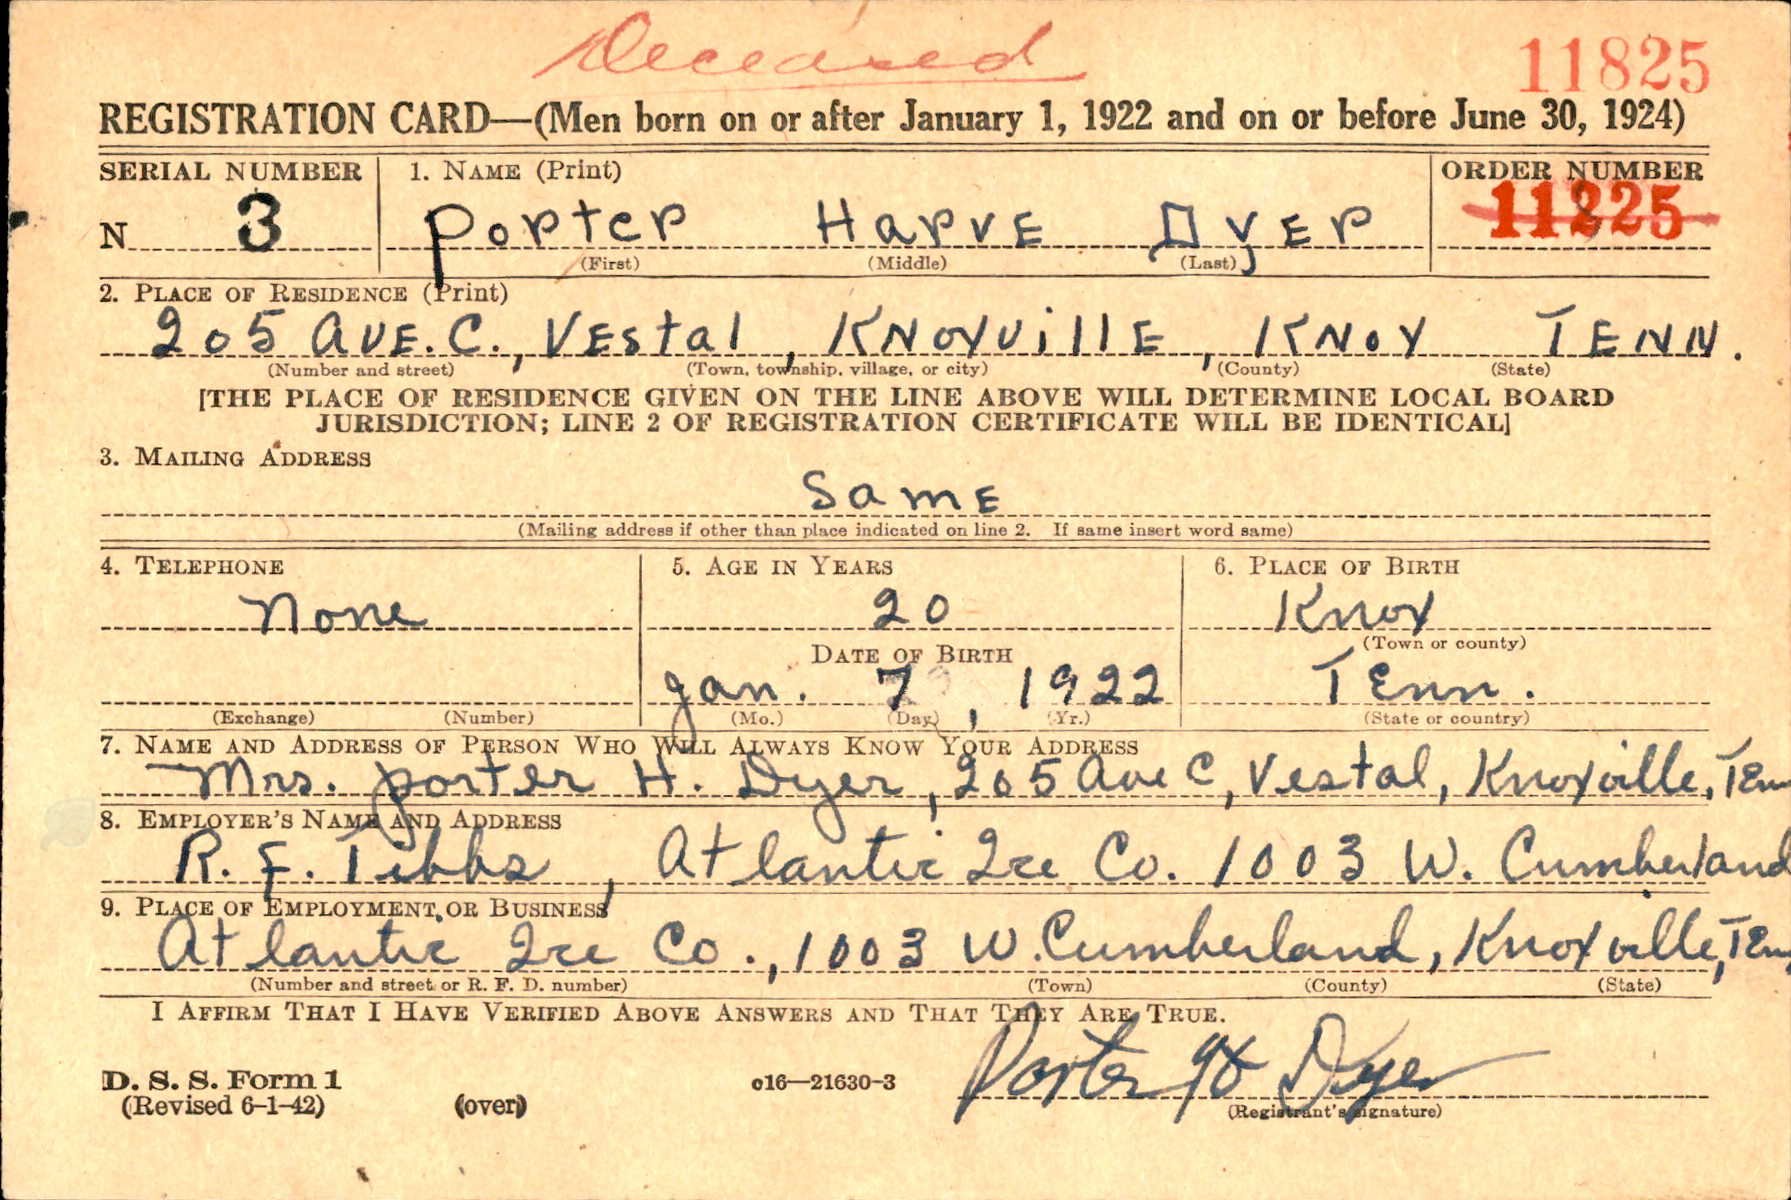 Deceased
11825
REGISTRATION CARD—(Men born on or after January 1, 1922 and on or before June 30, 1924)
SERIAL NUMBER 1. NAME (Print) ORDER NUMBER
N 3 Porter Harve Dyer 11825
(First) (Middle) (Last)
2. PLACE OF RESIDENCE (Print)
205 AVE. C., VEstal, KNoxvillE, KNox TENN.
(Number and street) (Town, township, village, or city) (County) (State)
[THE PLACE OF RESIDENCE GIVEN ON THE LINE ABOVE WILL DETERMINE LOCAL BOARD
JURISDICTION; LINE 2 OF REGISTRATION CERTIFICATE WILL BE IDENTICAL]
3. MAILING ADDRESS
SamE
(Mailing address if other than place indicated on line 2. If same insert word same)
4. TELEPHONE 5. AGE IN YEARS 6. PLACE OF BIRTH
None 20 Knox
(Town or county)
DATE OF BIRTH
Jan. 7, 1922 Tenn.
(Exchange) (Number) (Mo.) (Day) (Yr.) (State or country)
7. NAME AND ADDRESS OF PERSON WHO WILL ALWAYS KNOW YOUR ADDRESS
Mrs. Porter H. Dyer, 205 Ave C, Vestal, Knoxville, Tenn
8. EMPLOYER'S NAME AND ADDRESS
R. F. Tibbs, Atlantic Ice Co. 1003 W. Cumberland
9. PLACE OF EMPLOYMENT OR BUSINESS
Atlantic Ice Co., 1003 W. Cumberland, Knoxville, Tenn
(Number and street or R. F. D. number) (Town) (County) (State)
I AFFIRM THAT I HAVE VERIFIED ABOVE ANSWERS AND THAT THEY ARE TRUE.
Porter H Dyer
D. S. S. Form 1
(Revised 6-1-42) (over) c16—21630-3 (Registrant's signature)